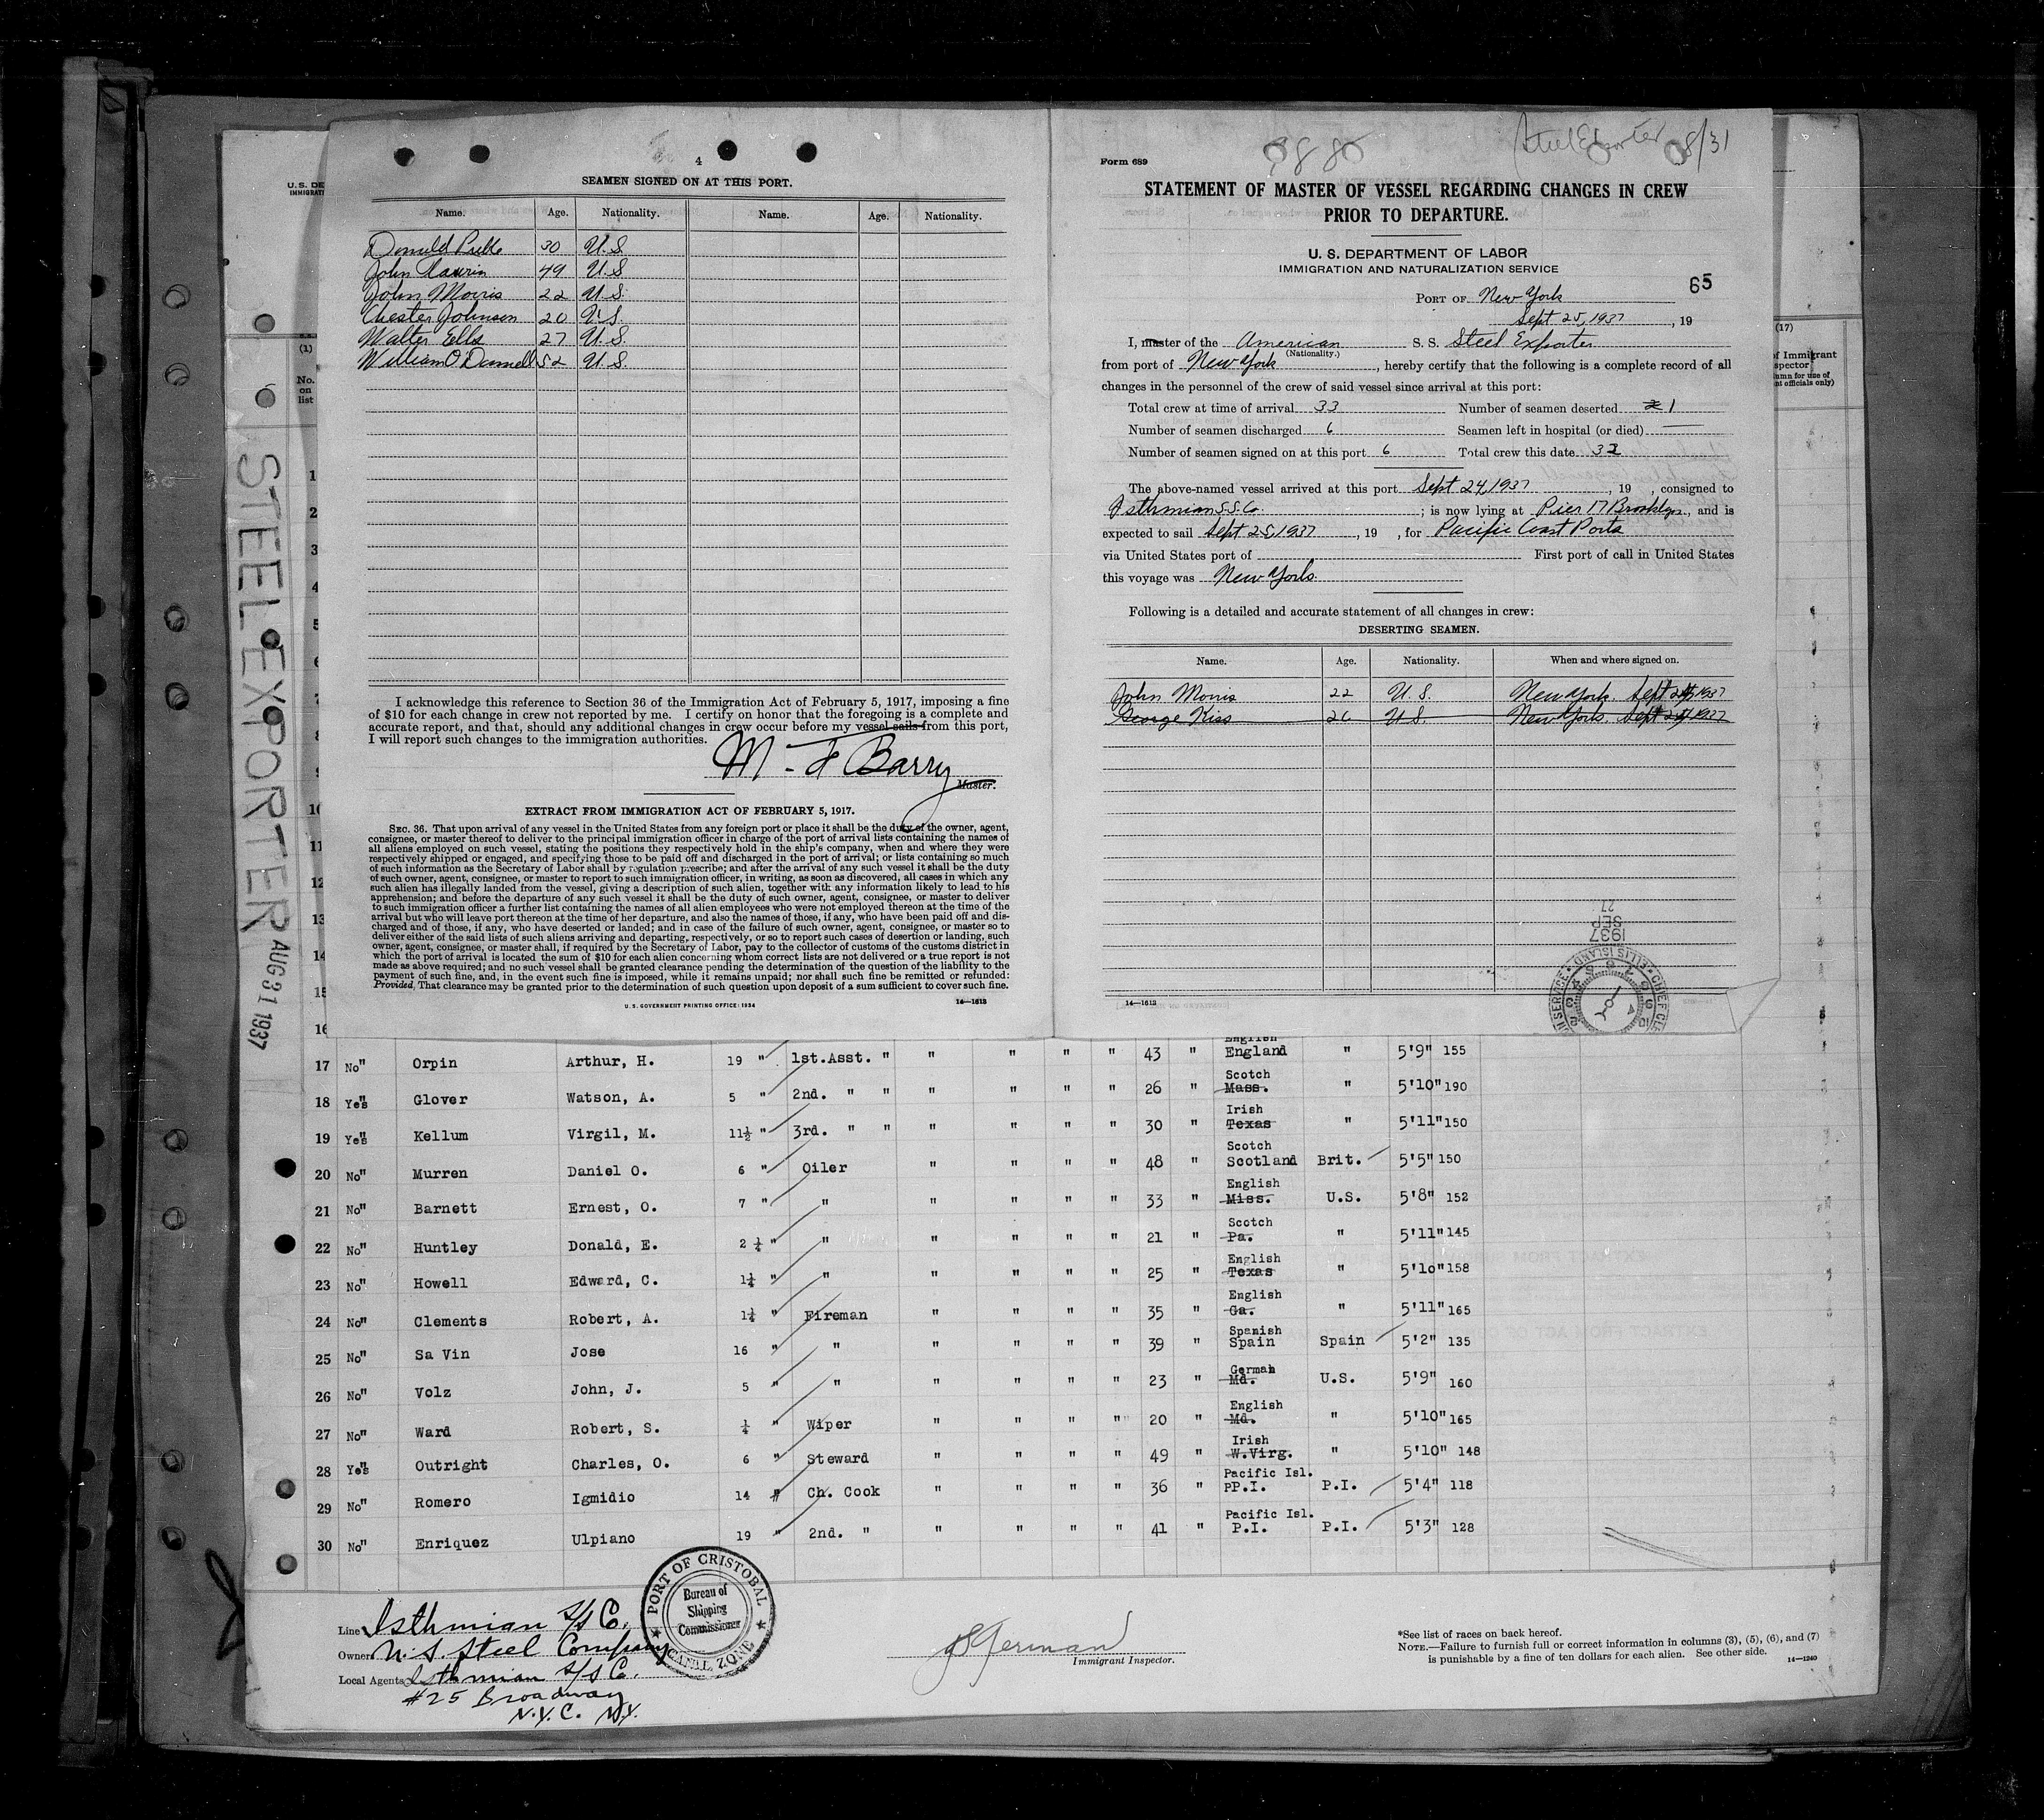 4
SEAMEN SIGNED ON AT THIS PORT.
Name. Age. Nationality. Name. Age. Nationality.
Donald 30 U.S.
John 49 U.S
John Morris 22 U.S.
Chester Johnson 20 U.S.
Walter Ells 27 U.S.
William O'Donnell 52 U.S.
I acknowledge this reference to Section 36 of the Immigration Act of February 5, 1917, imposing a fine
of $10 for each change in crew not reported by me. I certify on honor that the foregoing is a complete and
accurate report, and that, should any additional changes in crew occur before my vessel sails from this port,
I will report such changes to the immigration authorities.
M. F Barry
Master.
EXTRACT FROM IMMIGRATION ACT OF FEBRUARY 5, 1917.
SEC. 36. That upon arrival of any vessel in the United States from any foreign port or place it shall be the duty of the owner, agent,
consignee, or master thereof to deliver to the principal immigration officer in charge of the port of arrival lists containing the names of
all aliens employed on such vessel, stating the positions they respectively hold in the ship's company, when and where they were
respectively shipped or engaged, and specifying those to be paid off and discharged in the port of arrival; or lists containing so much
of such information as the Secretary of Labor shall by regulation prescribe; and after the arrival of any such vessel it shall be the duty
of such owner, agent, consignee, or master to report to such immigration officer, in writing, as soon as discovered, all cases in which any
such alien has illegally landed from the vessel, giving a description of such alien, together with any information likely to lead to his
apprehension; and before the departure of any such vessel it shall be the duty of such owner, agent, consignee, or master to deliver
to such immigration officer a further list containing the names of all alien employees who were not employed thereon at the time of the
arrival but who will leave port thereon at the time of her departure, and also the names of those, if any, who have been paid off and dis-
charged and of those, if any, who have deserted or landed; and in case of the failure of such owner, agent, consignee, or master so to
deliver either of the said lists of such aliens arriving and departing, respectively, or so to report such cases of desertion or landing, such
owner, agent, consignee, or master shall, if required by the Secretary of Labor, pay to the collector of customs of the customs district in
which the port of arrival is located the sum of $10 for each alien concerning whom correct lists are not delivered or a true report is not
made as above required; and no such vessel shall be granted clearance pending the determination of the question of the liability to the
payment of such fine, and, in the event such fine is imposed, while it remains unpaid; nor shall such fine be remitted or refunded:
Provided, That clearance may be granted prior to the determination of such question upon deposit of a sum sufficient to cover such fine.
U.S. GOVERNMENT PRINTING OFFICE: 1934 14—1613
Steel Exporter 8/31
Form 689
STATEMENT OF MASTER OF VESSEL REGARDING CHANGES IN CREW
PRIOR TO DEPARTURE.
U. S. DEPARTMENT OF LABOR
IMMIGRATION AND NATURALIZATION SERVICE
65
PORT OF New York
Sept 25, 1937, 19
I, master of the American S. S. Steel Exporter
(Nationality.)
from port of New York, hereby certify that the following is a complete record of all
changes in the personnel of the crew of said vessel since arrival at this port:
Total crew at time of arrival 33 Number of seamen deserted 1
Number of seamen discharged 6 Seamen left in hospital (or died) —
Number of seamen signed on at this port 6 Total crew this date 32
The above-named vessel arrived at this port Sept 24, 1937, 19 , consigned to
Isthmian S.S. Co. ; is now lying at Pier 17 Brooklyn, and is
expected to sail Sept 25, 1937, 19 , for Pacific Coast Ports
via United States port of First port of call in United States
this voyage was New York.
Following is a detailed and accurate statement of all changes in crew:
DESERTING SEAMEN.
Name. Age. Nationality. When and where signed on.
John Morris 22 U.S. New York. Sept 1937
George Kiss 26 U.S New York. Sept 1937
14—1613
1937
SEP
27
ELLIS ISLAND
U.S. DE
IMMIGRAT
(1)
No.
on
list
(17)
of Immigrant
spector
umn for use of
nt officials only)
STEEL EXPORTER AUG 31 1937
1
2
3
4
5
6
7
8
9
10
11
12
13
14
15
16
English
17 No" Orpin Arthur, H. 19 " 1st.Asst. " " " " " 43 " England " 5'9" 155
Scotch
18 Yes" Glover Watson, A. 5 " 2nd. " " " " " " 26 " Mass. " 5'10" 190
Irish
19 Yes" Kellum Virgil, M. 11½ " 3rd. " " " " " " 30 " Texas " 5'11" 150
Scotch
20 No" Murren Daniel O. 6 " Oiler " " " " 48 " Scotland Brit. 5'5" 150
English
21 No" Barnett Ernest, O. 7 " " " " " " 33 " Miss. U.S. 5'8" 152
Scotch
22 No" Huntley Donald, E. 2¼ " " " " " " 21 " Pa. " 5'11" 145
English
23 No" Howell Edward, C. 1¼ " " " " " " 25 " Texas " 5'10" 158
English
24 No" Clements Robert, A. 1¼ " Fireman " " " " 35 " Ga. " 5'11" 165
Spanish
25 No" Sa Vin Jose 16 " " " " " " 39 " Spain Spain 5'2" 135
German
26 No" Volz John, J. 5 " " " " " " 23 " Md. U.S. 5'9" 160
English
27 No" Ward Robert, S. ¼ " Wiper " " " " 20 " Md. " 5'10" 165
Irish
28 Yes" Outright Charles, O. 6 " Steward " " " " 49 " W.Virg. " 5'10" 148
Pacific Isl.
29 No" Romero Igmidio 14 " Ch. Cook " " " " 36 " PP.I. P.I. 5'4" 118
Pacific Isl.
30 No" Enriquez Ulpiano 19 " 2nd. " " " " " 41 " P.I. P.I. 5'3" 128
Line Isthmian S/S Co.
Owner U.S. Steel Company
Local Agents Isthmian S/S Co.
#25 Broadway
N.Y.C. N.Y.
PORT OF CRISTOBAL
Bureau of
Shipping
Commissioner
CANAL ZONE
Immigrant Inspector.
*See list of races on back hereof.
NOTE.—Failure to furnish full or correct information in columns (3), (5), (6), and (7)
is punishable by a fine of ten dollars for each alien. See other side. 14—1240